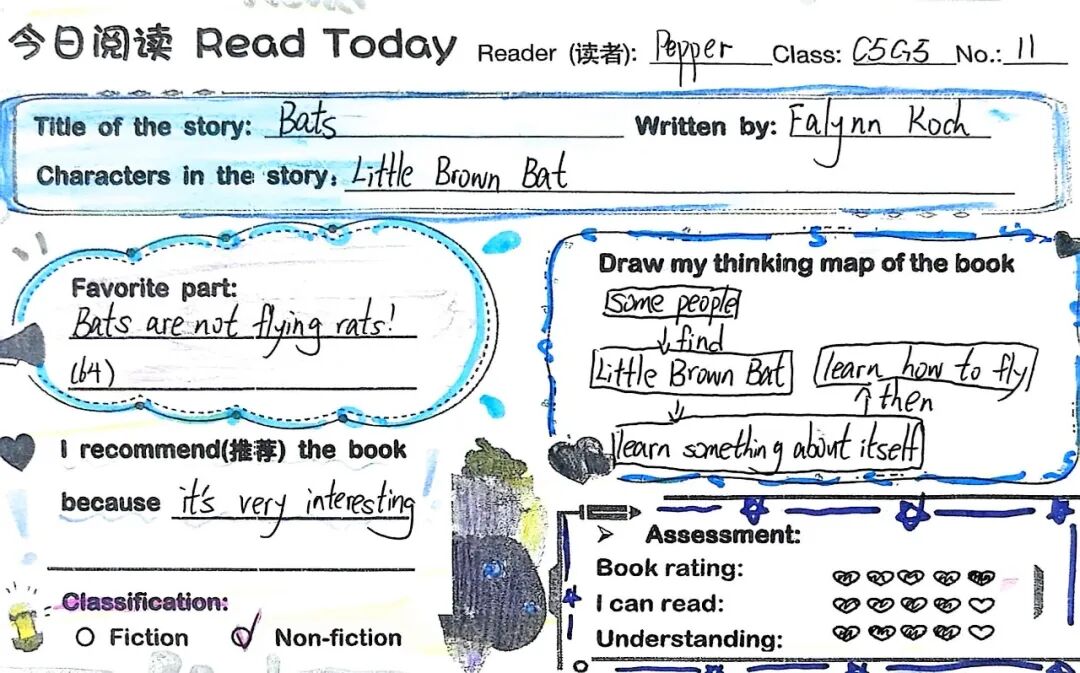 今日阅读 Read Today Reader (读者): Pepper Class: C5G5 No.: 11
Title of the story: Bats Written by: Falynn Koch
Characters in the story: Little Brown Bat
Favorite part:
Bats are not flying rats!
(64)
I recommend(推荐) the book
because it's very interesting
Classification:
Fiction Non-fiction
Draw my thinking map of the book
some people
find
Little Brown Bat
learn something about itself
then
learn how to fly
Assessment:
Book rating:
I can read:
Understanding: